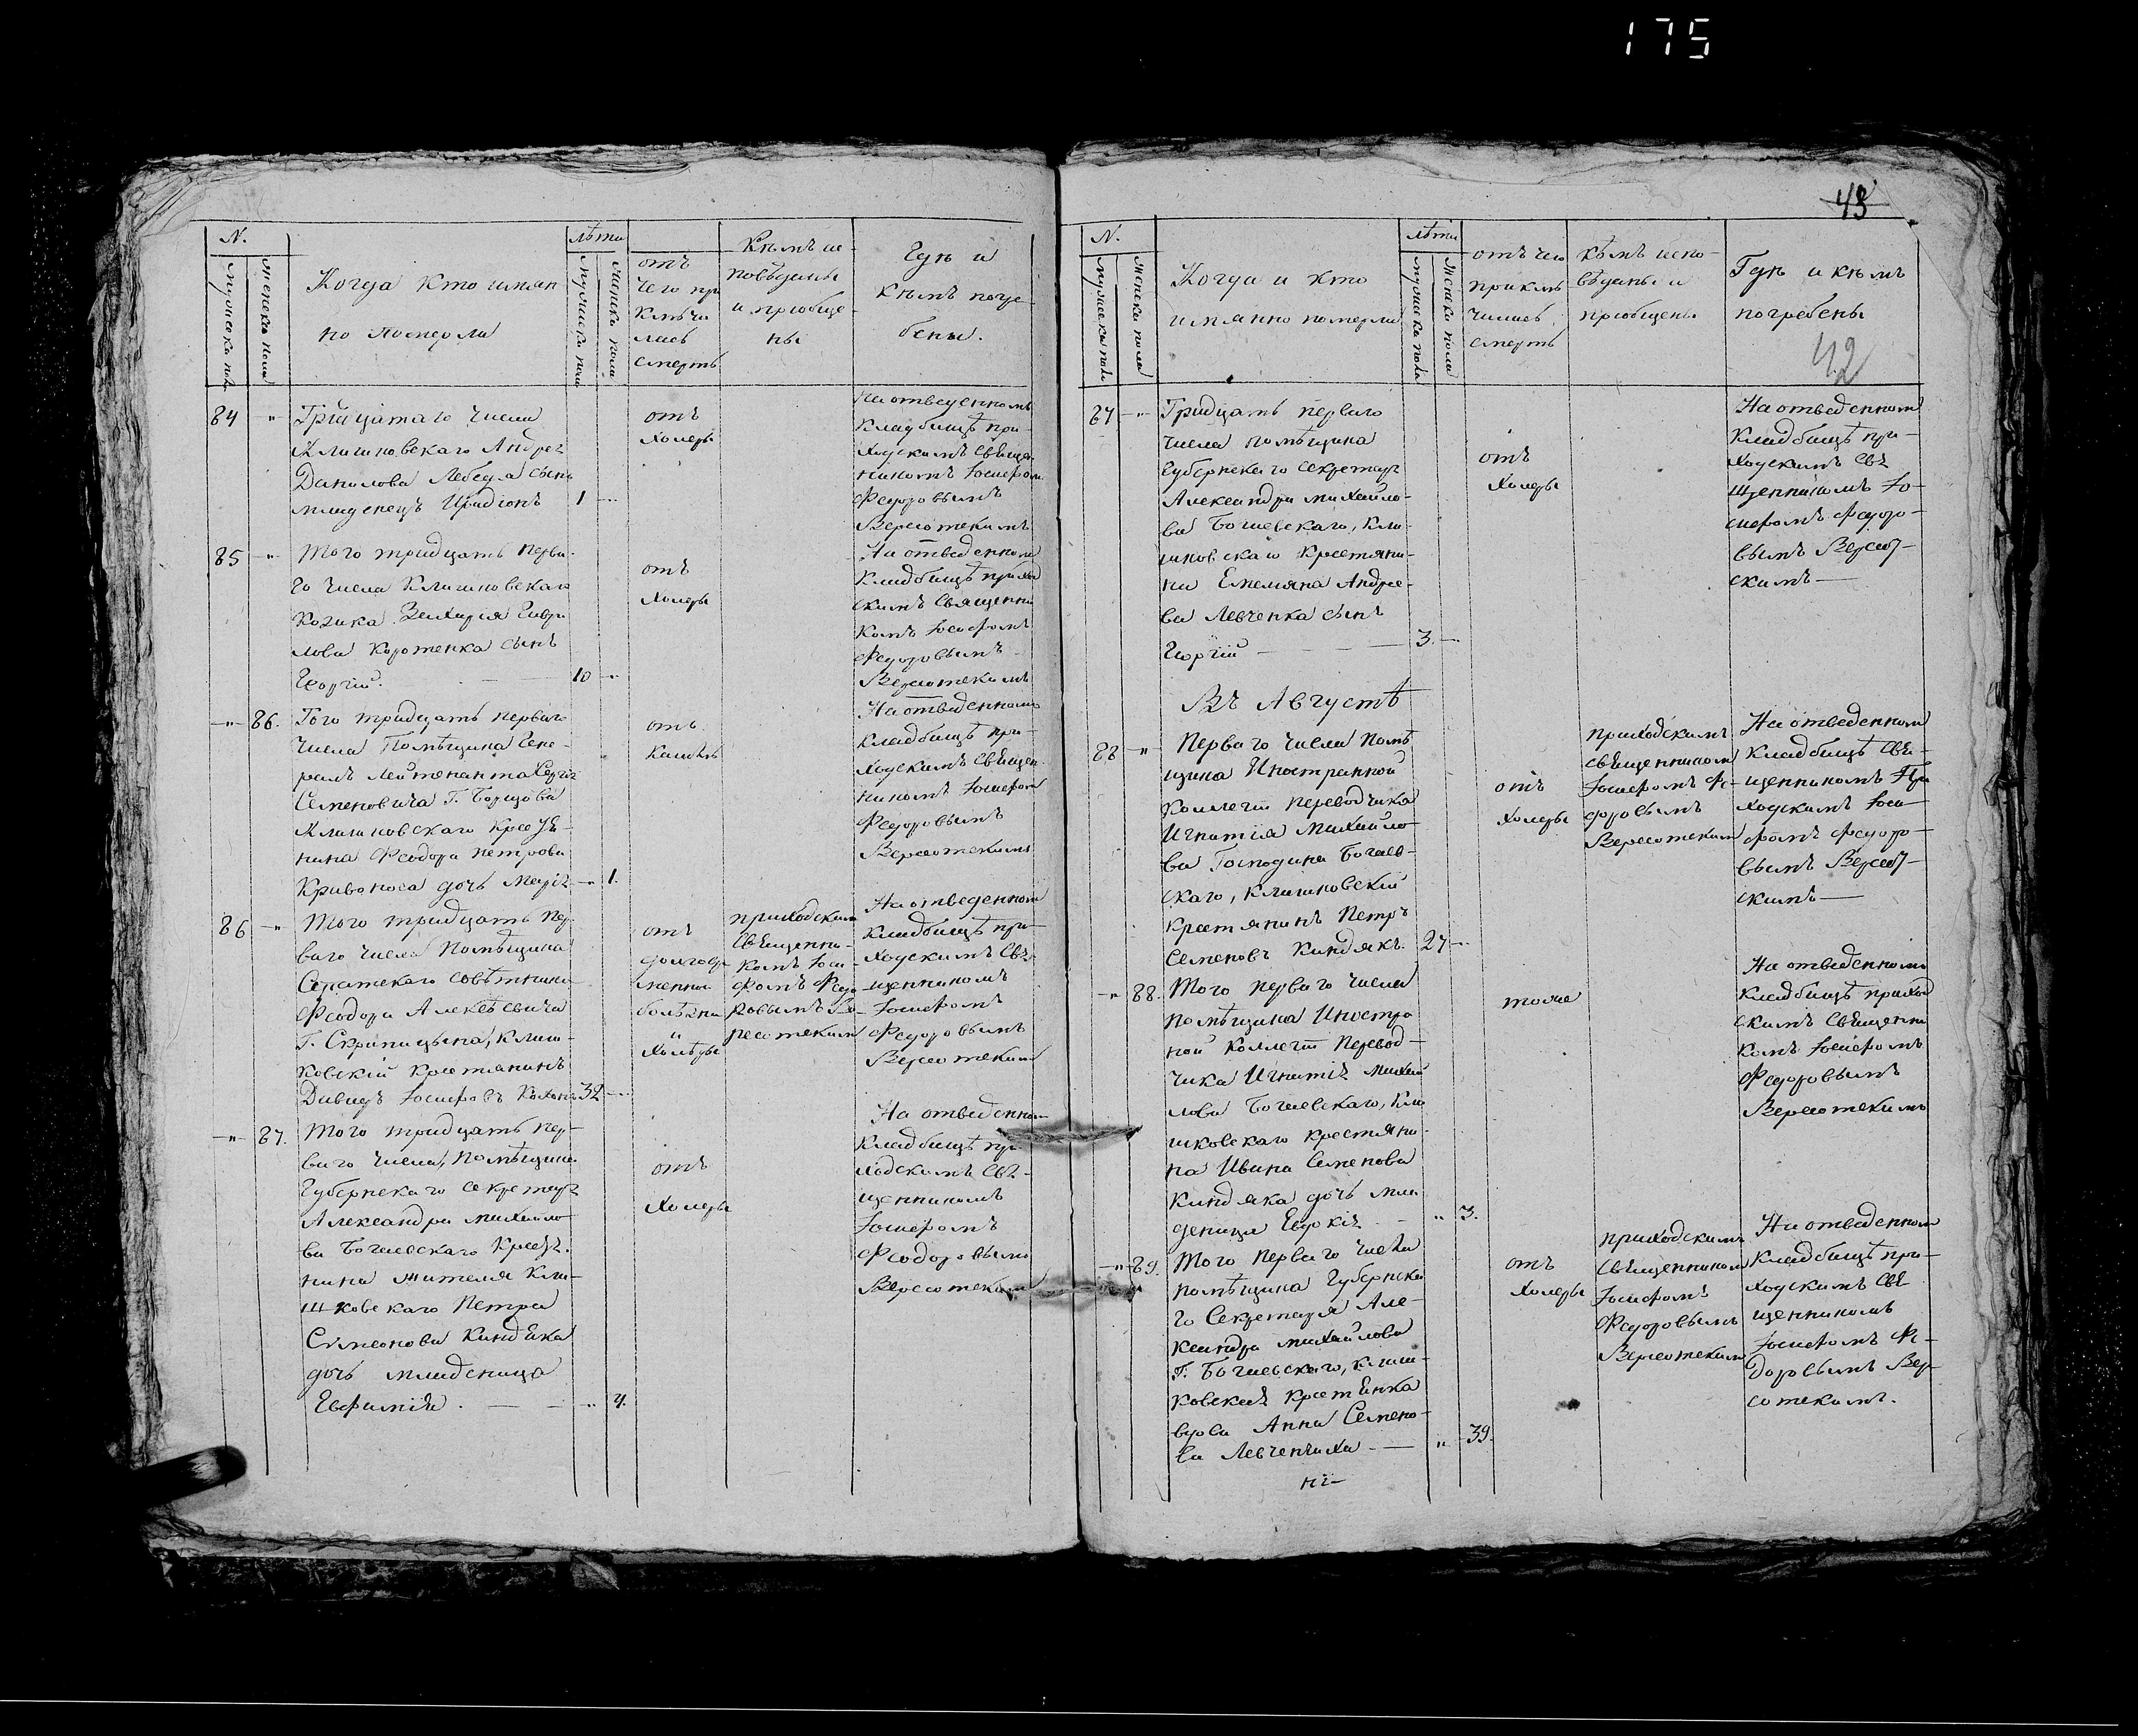 175
43
42
N.
мужеска пола
женска пола
Когда кто имян
но померли
лѣта
мужеска пола
женска пола
отъ
чего при
ключи
лась
смерть
Кѣмъ ис
повѣданы
и приобще
ны
Гдѣ и
кѣмъ погре
бены.
84 - "
Тридцатаго числа
Клишковскаго Андрея
Данилова Лебедя сынъ
младенецъ Иридіонъ 1
отъ
холеры
На отведенномъ
кладбищѣ при-
ходскимъ Священ
никомъ Іосифом
Федоровымъ
Версотскимъ
85 - "
Того тридцать перва
го числа Клишковскаго
козака Захарія Гаври
лова Коротенка сынъ
Георгій. 10
отъ
холеры
На отведенном
кладбищѣ приход
скимъ Священни
комъ Іосифомъ
Федоровымъ
Версотскимъ
- " - 86.
Того тридцать перваго
числа Помѣщика Гене-
ралъ Лейтенанта Сергія
Семеновича Г. Борщова
Клишковскаго Крестя-
нина Феодора Петрова
Кривоноса дочь Марія - " 1.
отъ
кашля
На отведенномъ
кладбищѣ при-
ходскимъ Священ
никомъ Іосифом
Федоровымъ
Версотскимъ
86 - "
Того тридцать пер
ваго числа Помѣщика
Статскаго Совѣтника
Феодора Алексѣевича
Г. Скрипицына, клиш-
ковскій крестьянинъ
Давидъ Іосифовъ 32
отъ
болѣзни
холеры
приходским
Священни-
комъ Іоси-
фомъ Федо
ровымъ Ве-
рсотским
На отведенном
кладбищѣ при-
ходскимъ Свя-
щенникомъ
Іосифомъ
Федоровымъ
Версотским
- " - 87.
Того тридцать пер-
ваго числа, помѣщика
Губернскаго секретаря
Александра Михайло
ва Богаевскаго Крестя.
нина жителя Кли-
шковскаго Петра
Симеонова Киндяка
дочь младеница
Евфимія. - - " 4.
отъ
холеры
На отведенном
кладбищѣ при
ходскимъ Свя-
щенникомъ
Іосифомъ
Феодоровымъ
Версотским
N.
мужеска пола
женска пола
Когда и кто
имянно померли
лѣта
мужеска пола
женска пола
отъ чего
приклю
чилась
смерть
кѣмъ испо-
вѣданы и
приобщены
Гдѣ и кѣмъ
погребены
87 - "
Тридцать перваго
числа помѣщика
Губернскаго секретаря
Александра Михайло-
ва Богаевскаго, Кли-
шковскаго Крестяни-
на Емеляна Андре-
ва Левченка сынъ
Георгій - - - 3. -
отъ
холеры
На отведенном
кладбищѣ при-
ходскимъ Свя
щенникомъ Іо-
сифомъ Федоро-
вымъ Версот-
скимъ
Въ Августѣ
88 - "
Перваго числа Помѣ
щика Иностранной
Коллегіи переводчика
Игнатія Михайло-
ва Господина Богаев-
скаго, Клишковскій
крестянинъ Петръ
Семеновъ Киндякъ. 27 -
отъ
холеры
приходскимъ
священником
Іосифомъ Фе-
доровымъ
Версотским
На отведенном
кладбищѣ Свя-
щенникомъ При
ходскимъ Іоси-
фомъ Федоро-
вымъ Версот-
скимъ
- " 88.
Того перваго числа
помѣщика Иностра
ной Коллегіи Перевод-
чика Игнатія Михай
лова Богаевскаго, Кли
шковскаго крестяни-
на Ивана Семенова
Киндяка дочь мла
деница Евдокія - - " 3.
тоже
На отведенномъ
кладбищѣ приход
скимъ Священни
комъ Іосифомъ
Федоровымъ
Версотскимъ
- " - 89.
Того перваго числа
помѣщика Губернска
го Секретаря Але-
ксандра Михайлова
Г. Богаевскаго, клиш-
ковская крестянка
вдова Анна Семено-
ва Левченчиха - - " 39.
отъ
холеры
приходскимъ
Священником
Іосифомъ
Федоровымъ
Версотским
На отведенном
кладбищѣ при-
ходскимъ Свя
щенникомъ
Іосифомъ Фе-
доровымъ Вер-
сотскимъ.